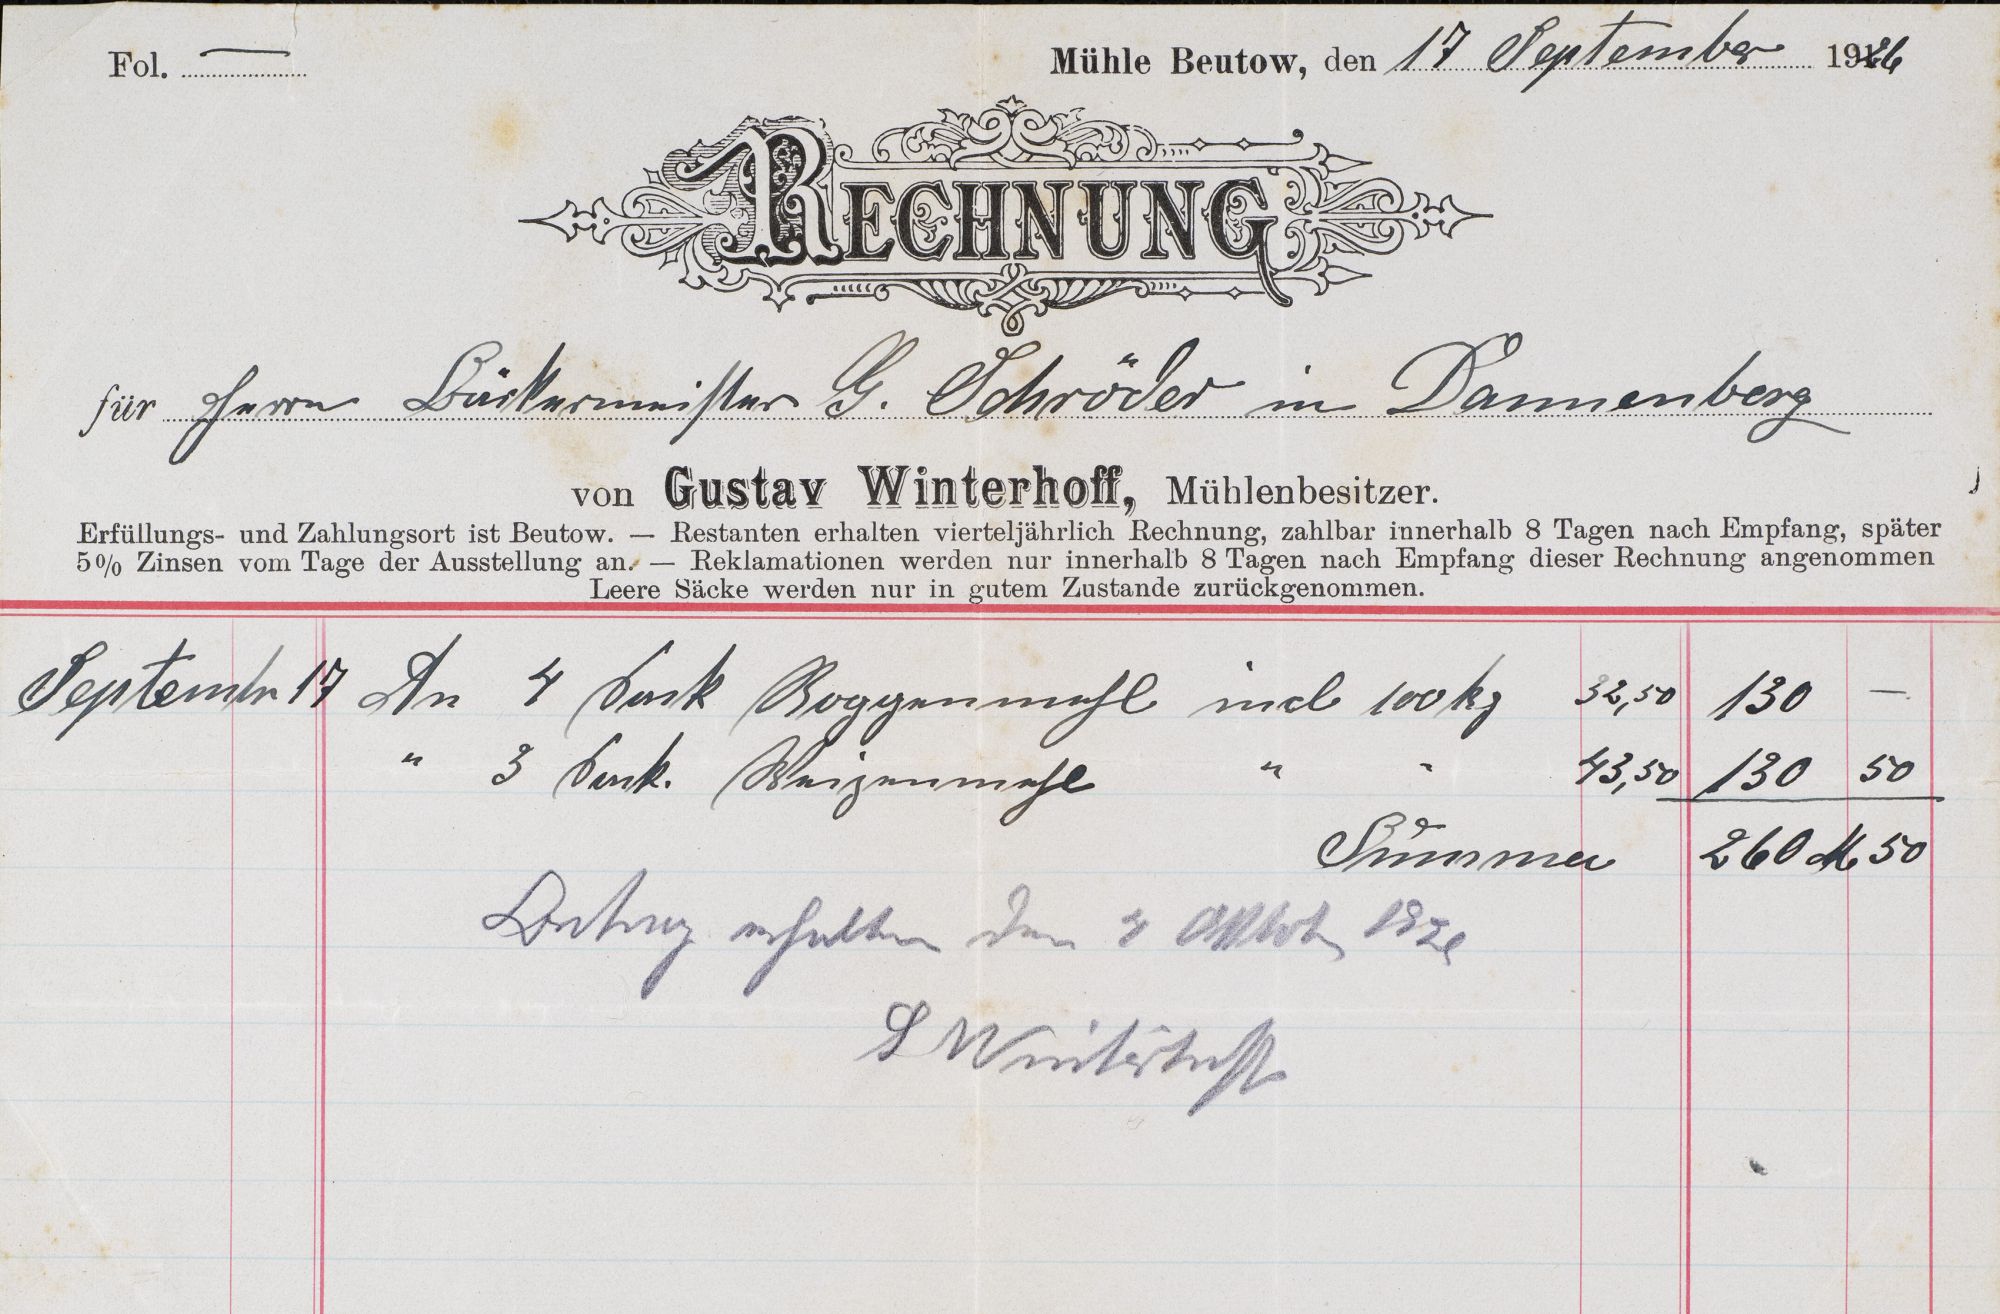 Fol. —
Mühle Beutow, den 17 September 1926
RECHNUNG
für Herrn Bäckermeister G. Schröder in Dannenberg
von Gustav Winterhoff, Mühlenbesitzer.
Erfüllungs- und Zahlungsort ist Beutow. — Restanten erhalten vierteljährlich Rechnung, zahlbar innerhalb 8 Tagen nach Empfang, später
5% Zinsen vom Tage der Ausstellung an. — Reklamationen werden nur innerhalb 8 Tagen nach Empfang dieser Rechnung angenommen
Leere Säcke werden nur in gutem Zustande zurückgenommen.
September 17 An 4 Sack Roggenmehl incl 100 kg 32,50 130 —
" 3 Sack. Weizenmehl " " 43,50 130 50
Summa 260 M 50
Betrag erhalten den Oktob 1926
G Winterhoff